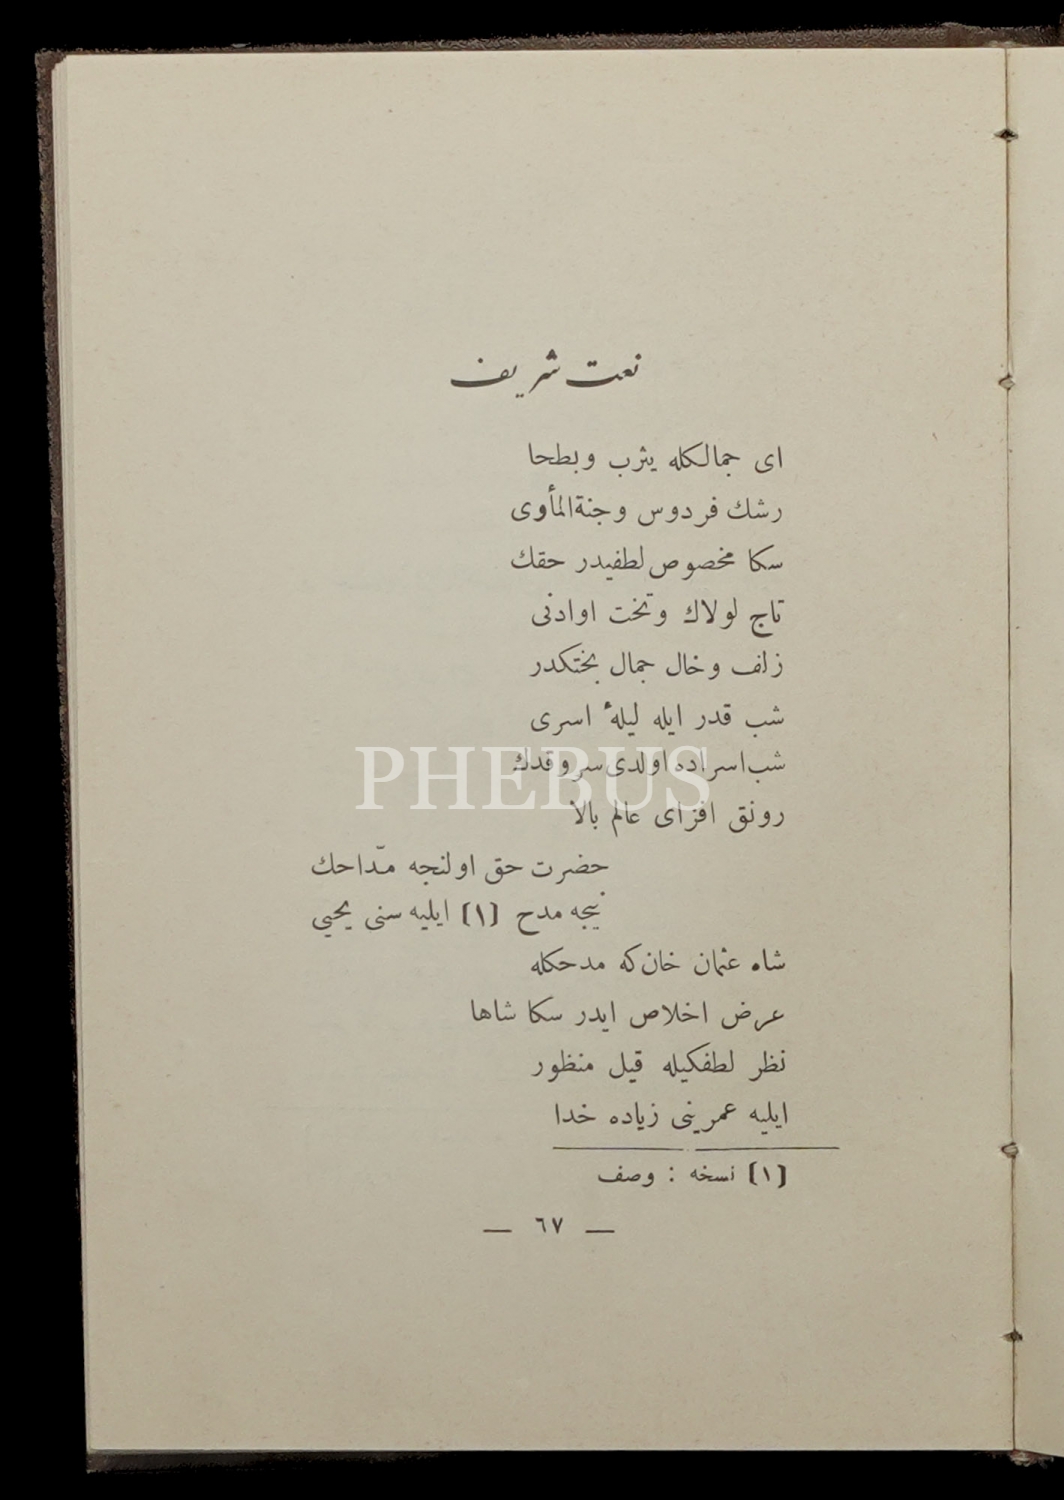 نعت شریف
ای جمالكله یثرب و بطحا
رشك فردوس و جنةالمأوی
سكا مخصوص لطفیدر حقك
تاج لولاك و تخت اوادنی
زلف و خال جمال بختكدر
شب قدر ایله لیلهٔ اسری
شب اسراده اولدی سرو قدك
PHEBUS
رونق افزای عالم بالا
حضرت حق اولنجه مدّاحك
نیجه مدح (۱) ایلیه سنی یحیی
شاه عثمان خان كه مدحكله
عرض اخلاص ایدر سكا شاها
نظر لطفكیله قیل منظور
ایلیه عمرینی زیاده خدا
(۱) نسخه : وصف
— ٦٧ —